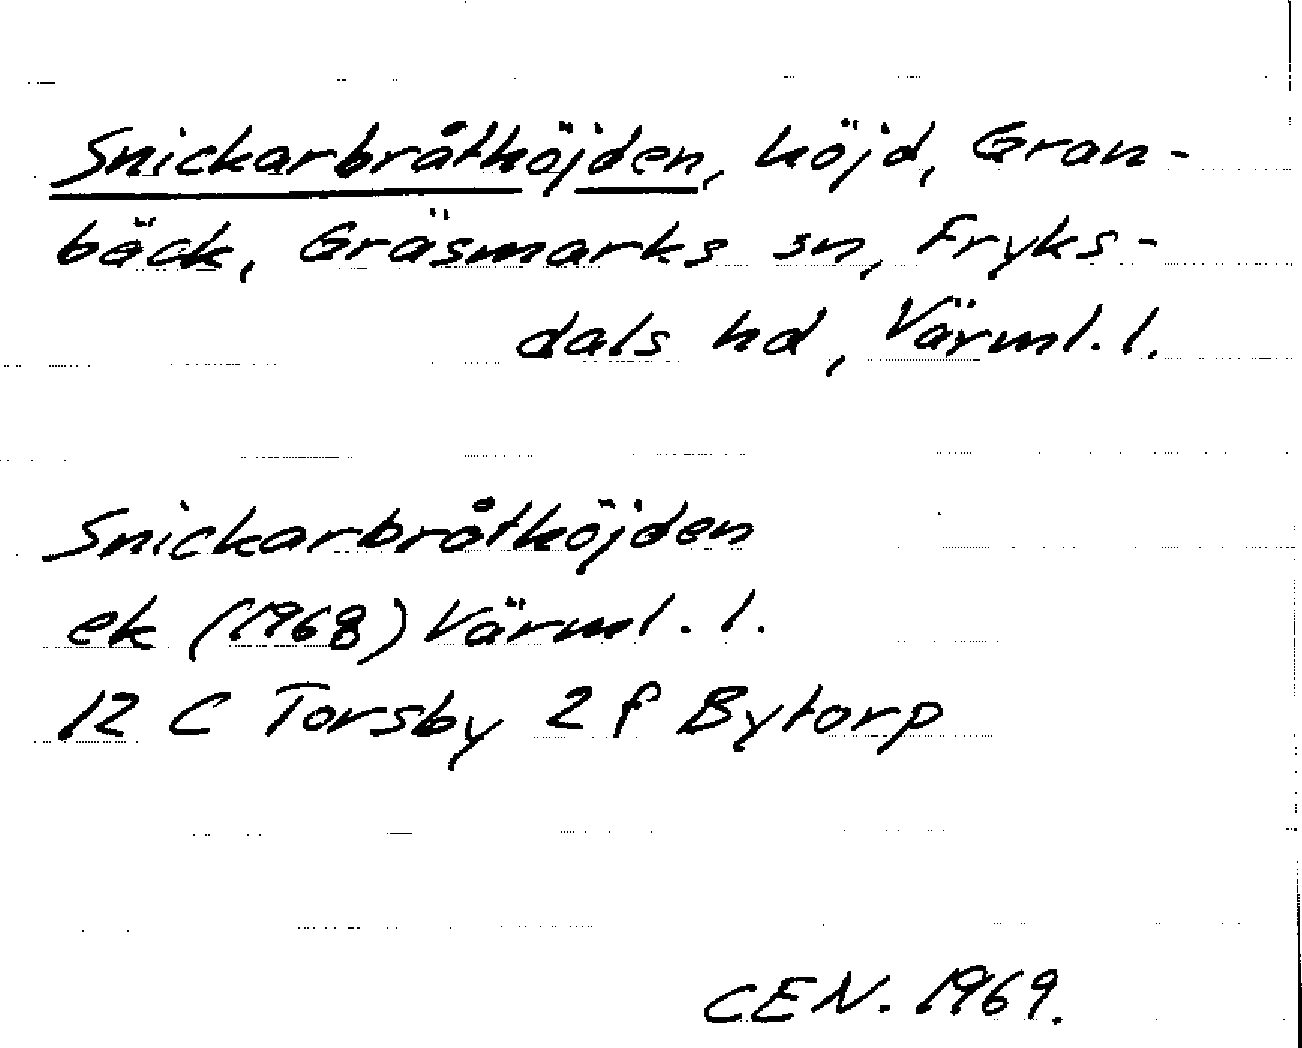 Snickarbråthöjden, höjd, Gran-
bäck, Gräsmarks sn, Fryks-
dals hd, Värml. l.
Snickarbråthöjden
ek (1968) Värml. l.
12 C Torsby 2 f Bytorp
CEN. 1969.